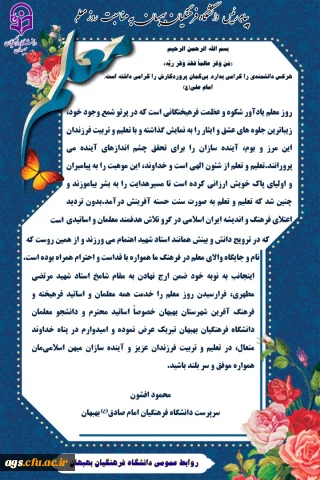 پیام رئیس دانشگاه فرهنگیان بهبهان به مناسبت روز معلم
دانشگاه فرهنگیان
بهبهان
معلم
بسم الله الرحمن الرحیم
«مَن وَقَّرَ عالِماً فَقَد وَقَّرَ رَبَّه»
هرکس دانشمندی را گرامی بدارد، بی‌گمان پروردگارش را گرامی داشته است.
امام علی(ع)
روز معلم یادآور شکوه و عظمت فرهیختگانی است که در پرتو شمع وجود خود،
زیباترین جلوه های عشق و ایثار را به نمایش گذاشته و با تعلیم و تربیت فرزندان
این مرز و بوم، آینده سازان را برای تحقق چشم اندازهای آینده می
پرورانند.تعلیم و تعلم از شئون الهی است و خداوند، این موهبت را به پیامبران
و اولیای پاک خویش ارزانی کرده است تا مسیر هدایت را به بشر بیاموزند و
چنین شد که تعلیم و تعلم به صورت سنت حسنه آفرینش درآمد.بدون تردید
اعتلای فرهنگ و اندیشه ایران اسلامی در گرو تلاش هدفمند معلمان و اساتیدی است
که در ترویج دانش و بینش همانند استاد شهید اهتمام می ورزند و از همین روست که
نام و جایگاه والای معلم در فرهنگ ما همواره با قداست و احترام همراه بوده است.
اینجانب به نوبه خود ضمن ارج نهادن به مقام شامخ استاد شهید مرتضی
مطهری، فرارسیدن روز معلم را خدمت همه معلمان و اساتید فرهیخته و
فرهنگ آفرین شهرستان بهبهان خصوصاً اساتید محترم و دانشجو معلمان
دانشگاه فرهنگیان بهبهان تبریک عرض نموده و امیدوارم در پناه خداوند
متعال، در تعلیم و تربیت فرزندان عزیز و آینده سازان میهن اسلامی‌مان
همواره موفق و سر بلند باشید.
محمود افشون
سرپرست دانشگاه فرهنگیان امام صادق(ع) بهبهان
روابط عمومی دانشگاه فرهنگیان بهبهان
ags.cfu.ac.ir